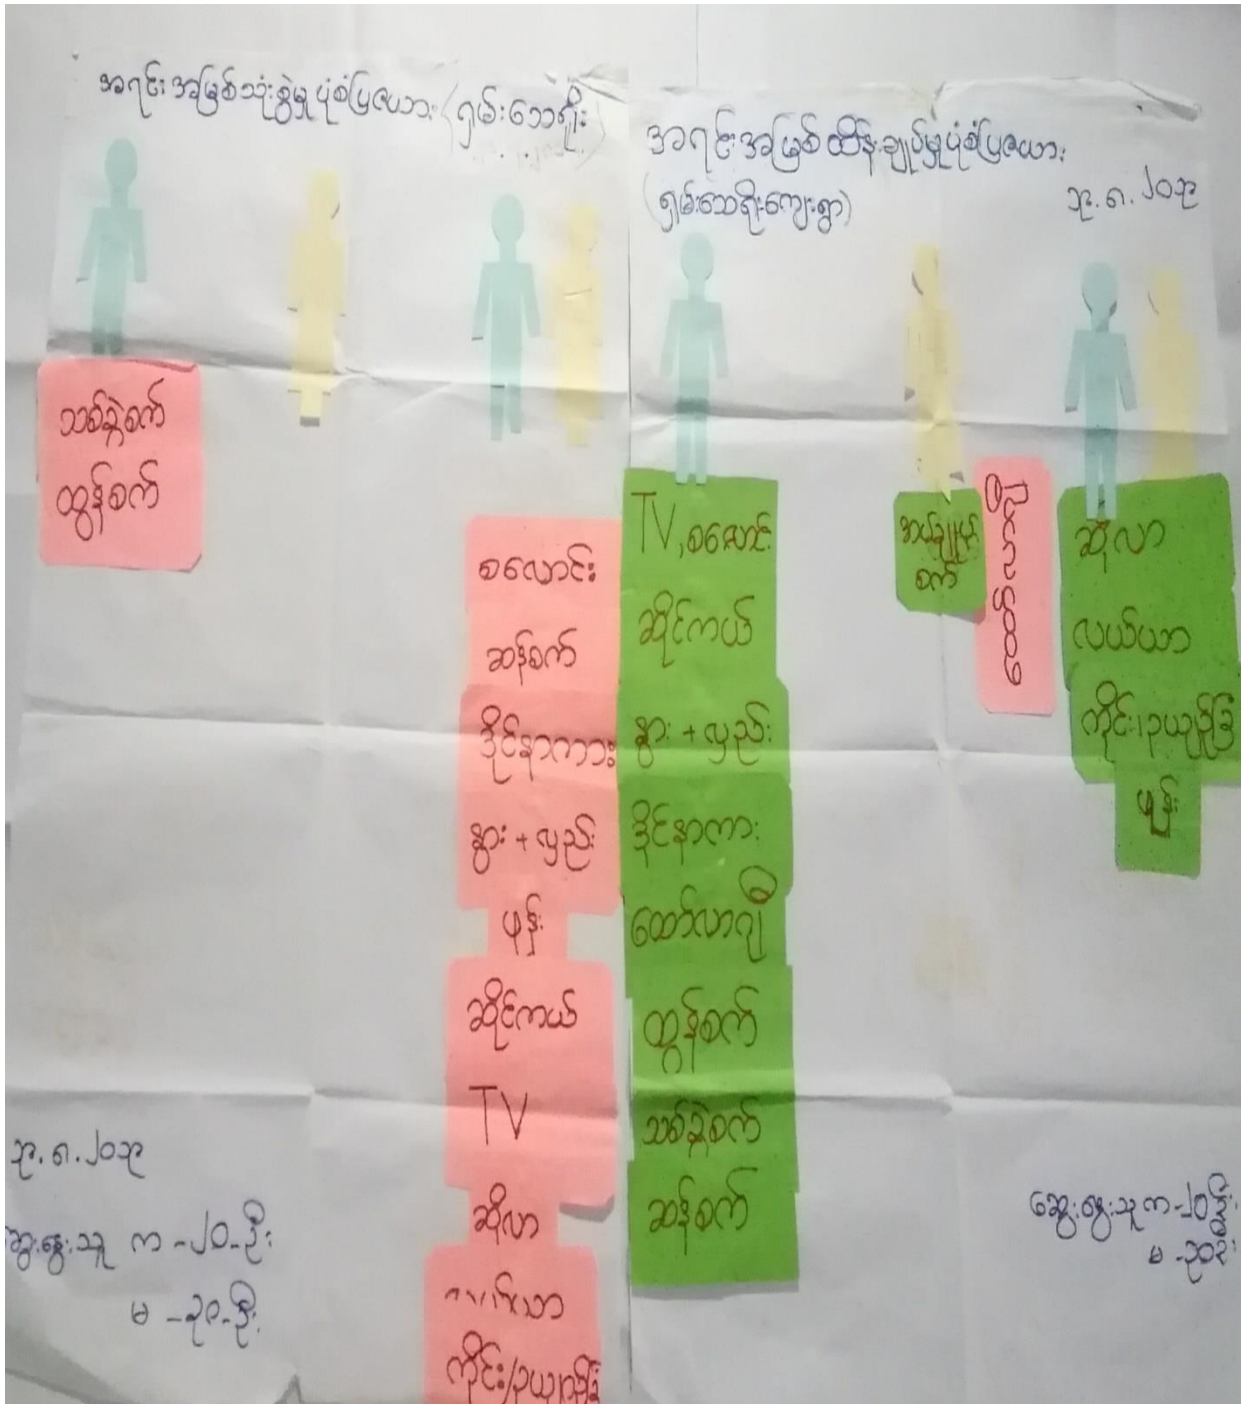 အရင်းအမြစ်သုံးစွဲမှုပုံစံပြဇယား (ရှမ်းဘောရိုး)
သစ်ခွဲစက်
ထွန်စက်
စလောင်း
ဆန်စက်
ဒိုင်နာကား
နွား + လှည်း
ဖုန်း
ဆိုင်ကယ်
TV
ဆိုလာ
ကိုင်း/ဥယျာဉ်ခြံ
၃၁.၈.၂၀၁၃
ဆွေးနွေးသူ က -၂၀-ဦး
အရင်းအမြစ်ထိန်းချုပ်မှုပုံစံပြဇယား
TV, စလောင်း
ဆိုင်ကယ်
နွား + လှည်း
ဒိုင်နာကား
ထော်လာဂျီ
ထွန်စက်
သစ်ခွဲစက်
ဆန်စက်
အပ်ချုပ်
စက်
ဆိုလာ
လယ်ယာ
ကိုင်း၊ဥယျာဉ်ခြံ
ဖုန်း
ဆွေးနွေးသူ က-၂၀ဦး